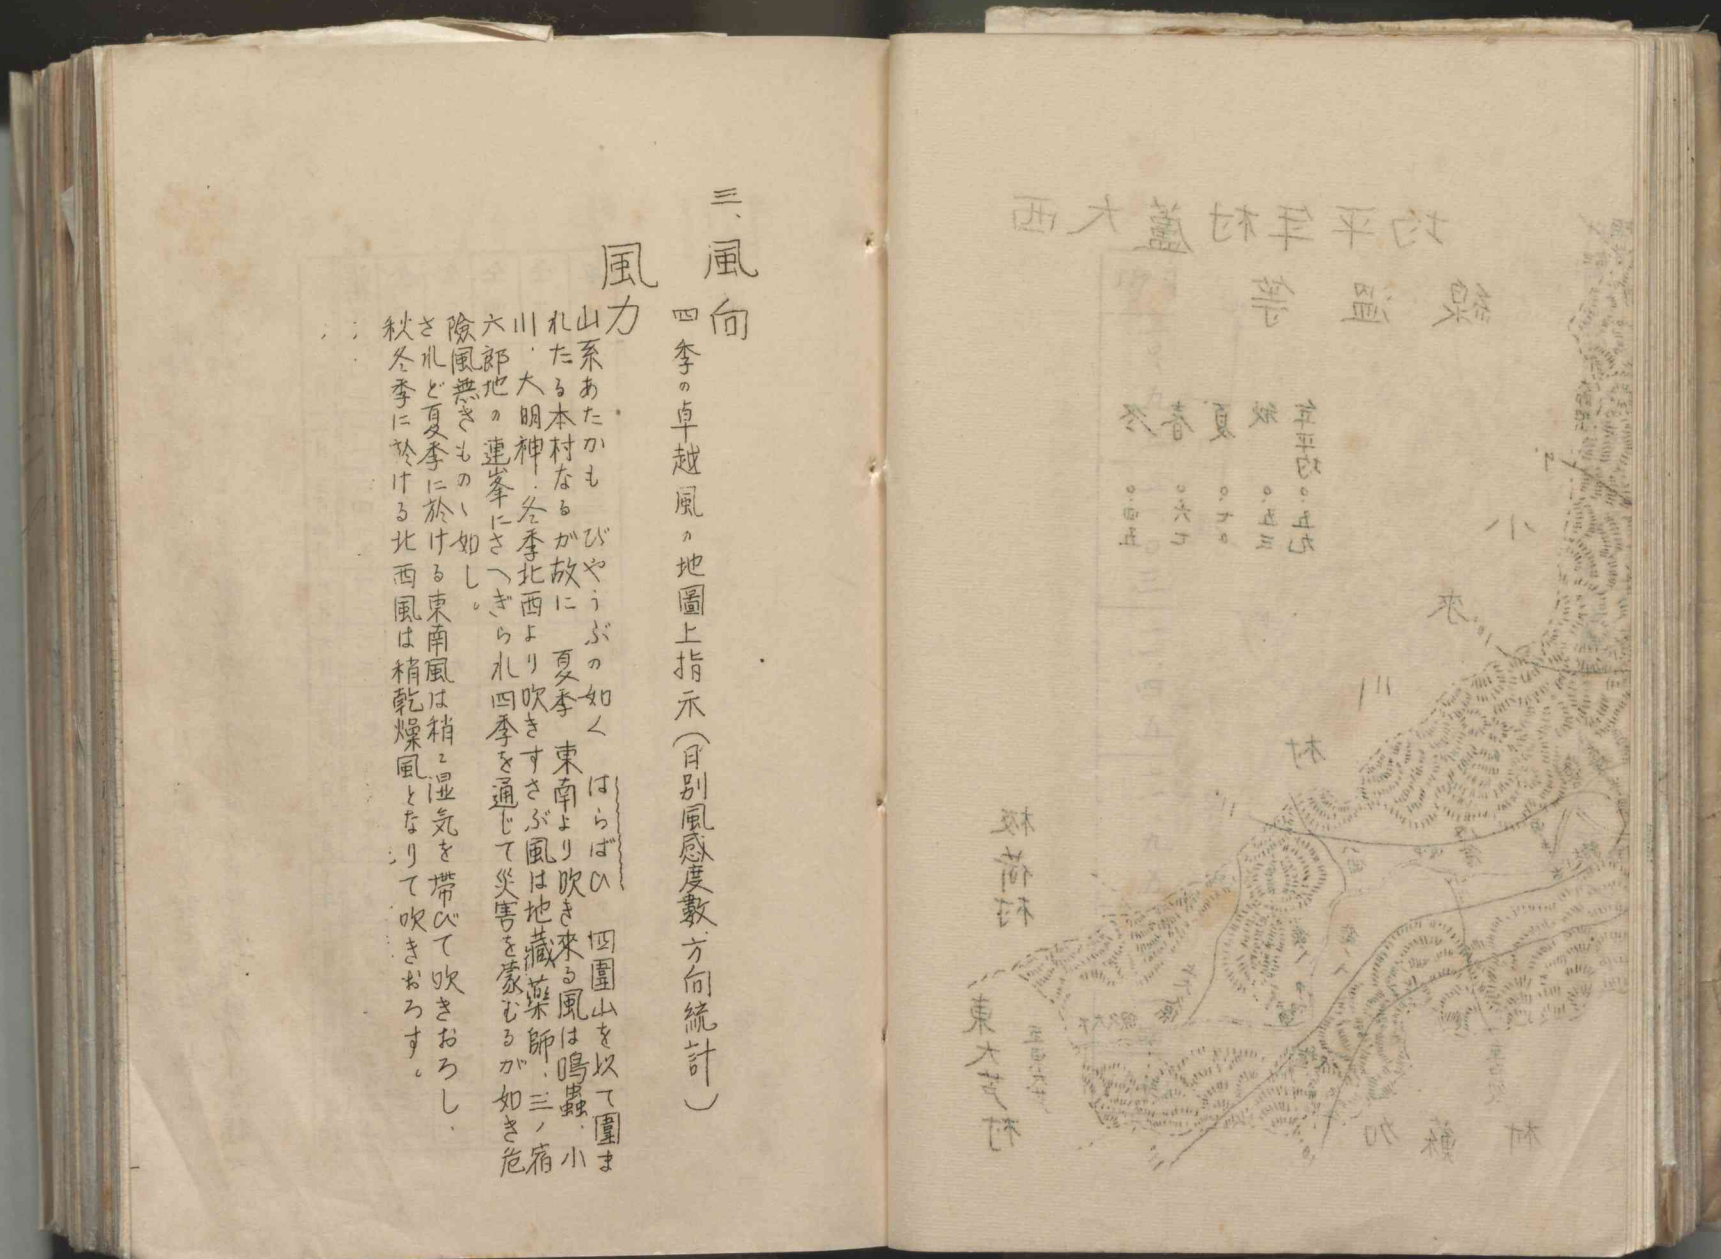 三、風向
四季の卓越風の地圖上指示(日別風感度數、方向統計)
風力
山系あたかも びやうぶの如く はらばひ 四圍山を以て圍ま
れたる本村なるが故に 夏季 東南より吹き來る風は鳴蟲、小
川、大明神、冬季北西より吹きすさぶ風は地藏藥師、三ノ宿
六郎地の連峯にさへぎられ四季を通じて災害を蒙むるが如き危
險風無きものゝ如し。
されど夏季に於ける東南風は稍々湿気を帯びて吹きおろし、
秋冬季に於ける北西風は稍乾燥風となりて吹きおろす。
西大蘆村年平均
等温線
年平均 〇.五九
秋 〇.五三
夏 〇.七〇
春 〇.六七
冬 〇.四五
小來川村
板荷村
東大芦村
加蘇村